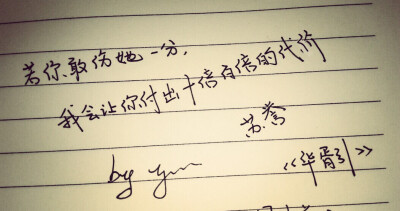 若你敢伤她一分,
我会让你付出十倍百倍的代价
苏誉
by yu
《华胥引》